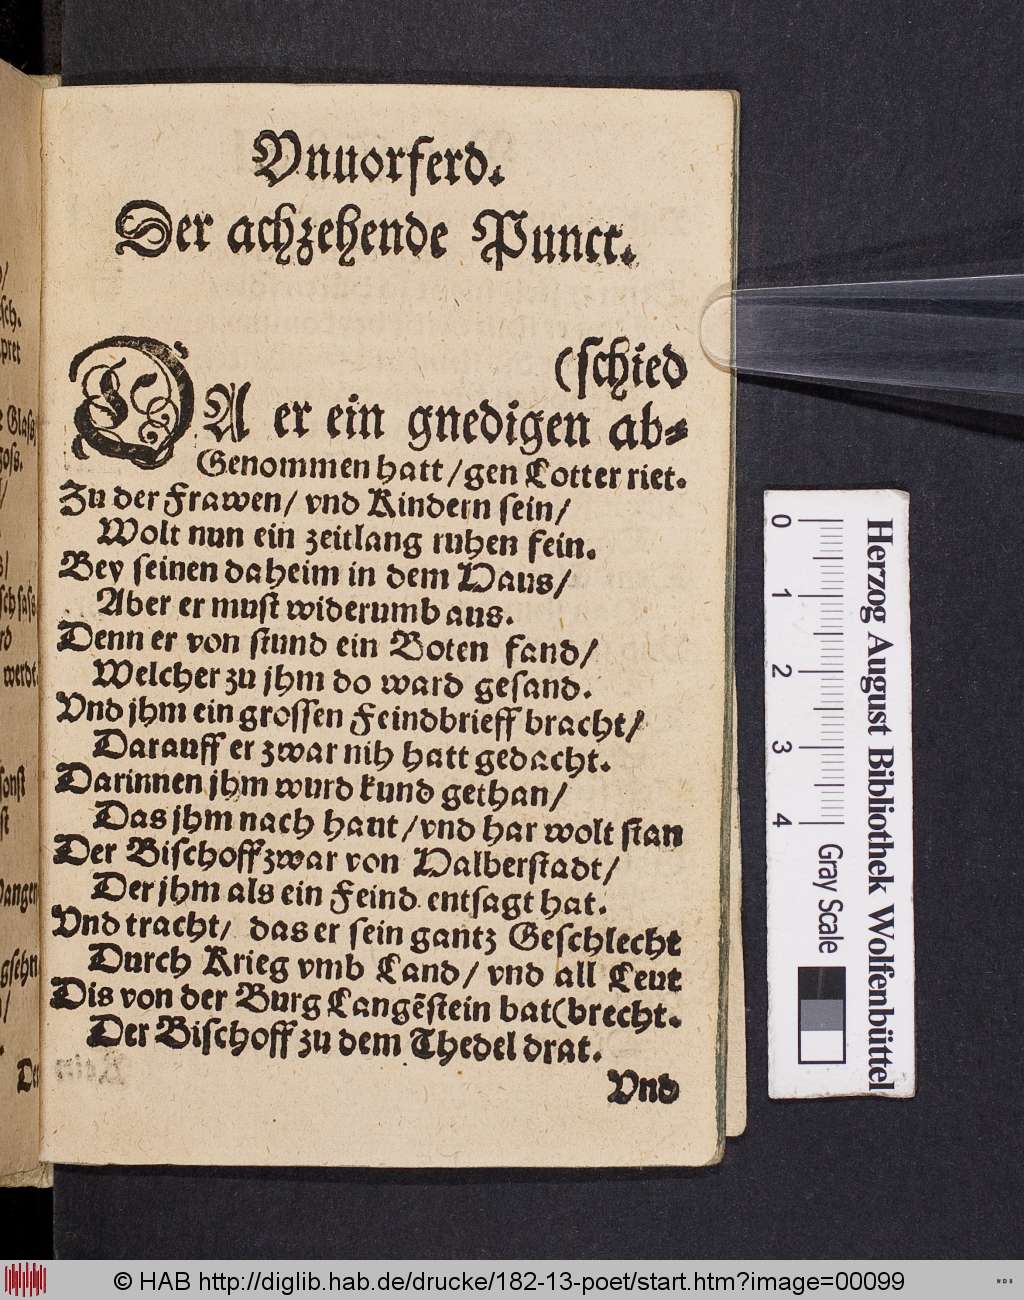 Vnuorferd.
Der achzehende Punct.
(schied
DA er ein gnedigen ab⸗
Genommen hatt / gen Lotter riet.
Zu der Frawen / vnd Kindern sein /
Wolt nun ein zeitlang ruhen fein.
Bey seinen daheim in dem Haus /
Aber er must widerumb aus.
Denn er von stund ein Boten fand /
Welcher zu jhm do ward gesand.
Vnd jhm ein grossen Feindbrieff bracht /
Darauff er zwar nih hatt gedacht.
Darinnen jhm wurd kund gethan /
Das jhm nach haut / vnd har wolt stan
Der Bischoff zwar von Halberstadt /
Der jhm als ein Feind entsagt hat.
Vnd tracht / das er sein gantz Geschlecht
Durch Krieg vmb Land / vnd all Leut
Dis von der Burg Langēstein bat (brecht.
Der Bischoff zu dem Thedel drat.
Vnd
/
sch.
pret
Glass
goss.
/
/
sch sass
rd
werdt
sonst
st
Wangen
gsehn
/
Der
0
1
2
3
4
Herzog August Bibliothek Wolfenbüttel
Gray Scale
© HAB http://diglib.hab.de/drucke/182-13-poet/start.htm?image=00099